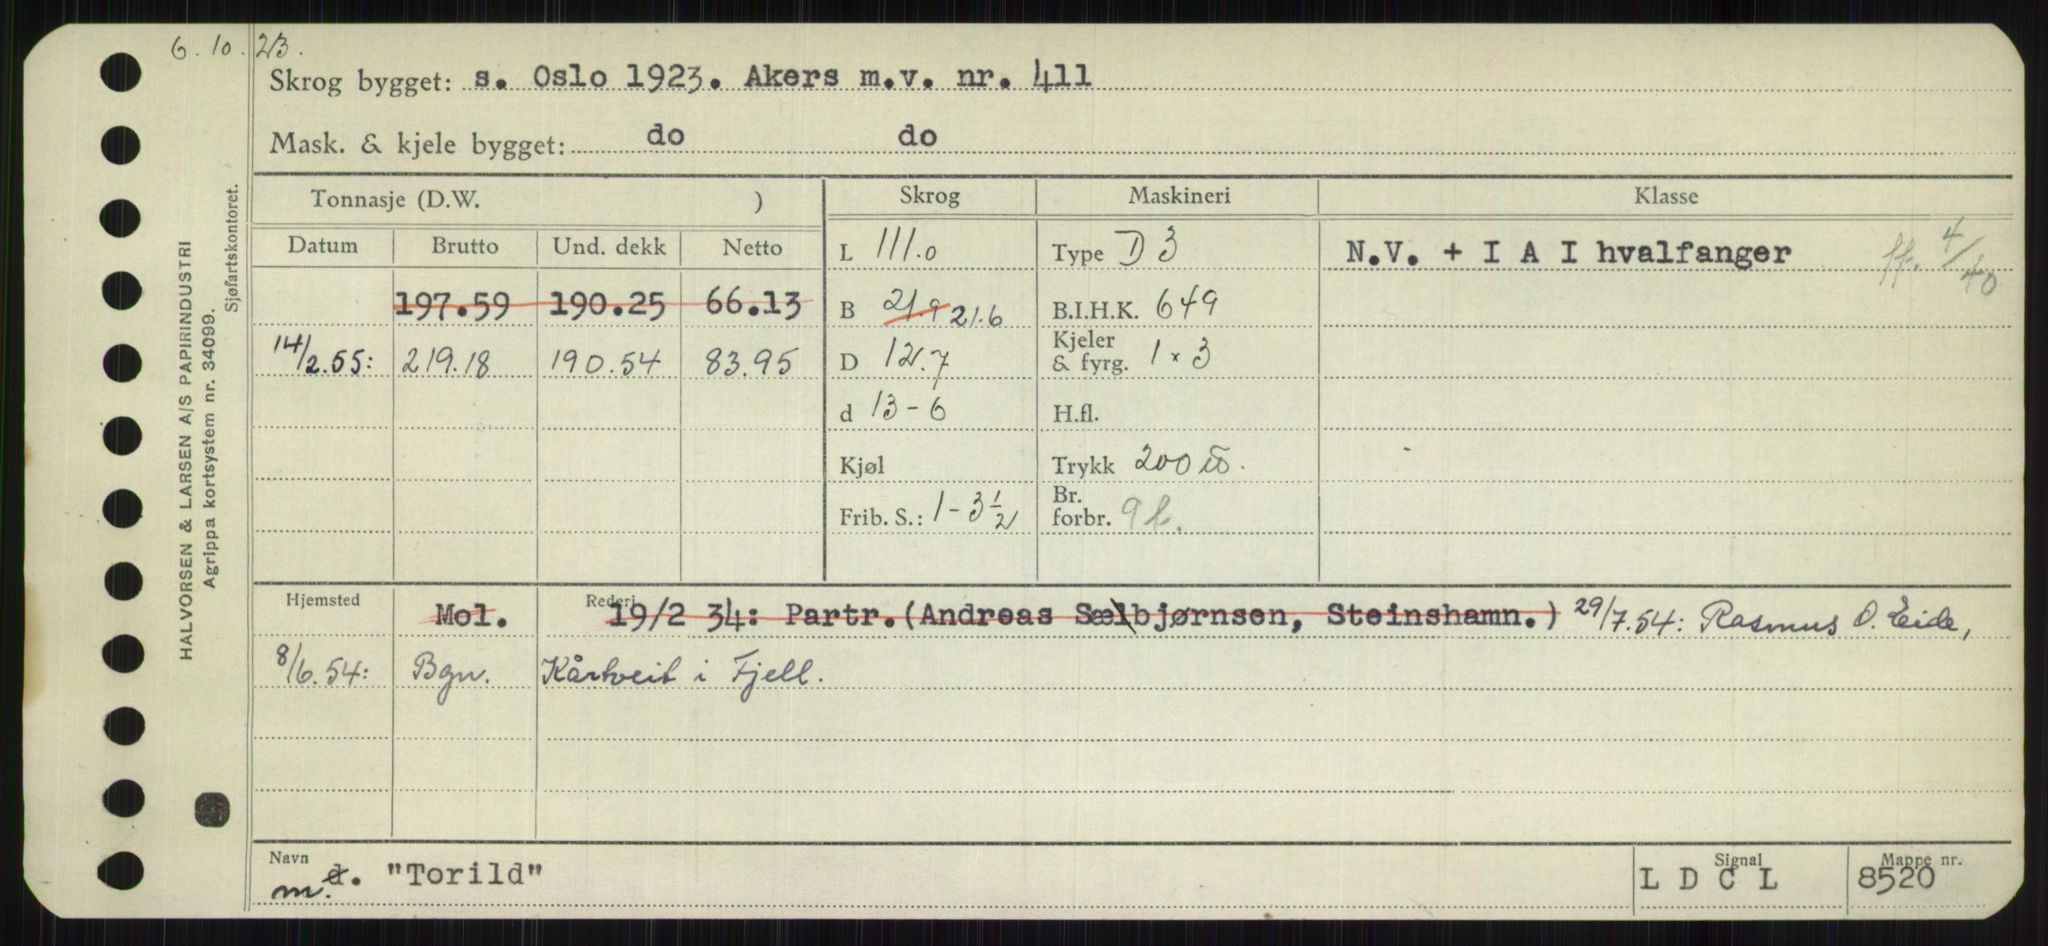 6. 10. 23.
Skrog bygget: s. Oslo 1923. Akers m.v. nr. 411
Mask. & kjele bygget: do do
Tonnasje (D.W. ) Skrog Maskineri Klasse
Datum Brutto Und. dekk Netto L 111.0 Type D 3 N.V. + I A I hvalfanger ff. 4/40
197.59 190.25 66.13 B 21.9 21.6 B.I.H.K. 649
14/2.55: 219.18 190.54 83.95 D 12.7 Kjeler & fyrg. 1 x 3
d 13-6 H.fl.
Kjøl Trykk 200
Frib. S.: 1-3 1/2 Br. forbr. 9 t.
Hjemsted Rederi
Mol. 19/2 34: Partr. (Andreas Sælbjørnsen, Steinshamn.) 29/7.54: Rasmus O. Eide,
8/6.54: Bgn. Kårtveit i Fjell.
Navn Signal Mappe nr.
m. d. "Torild" L D C L 8520
HALVORSEN & LARSEN A/S PAPIRINDUSTRI
Agrippa kortsystem nr. 34099.
Sjøfartskontoret.